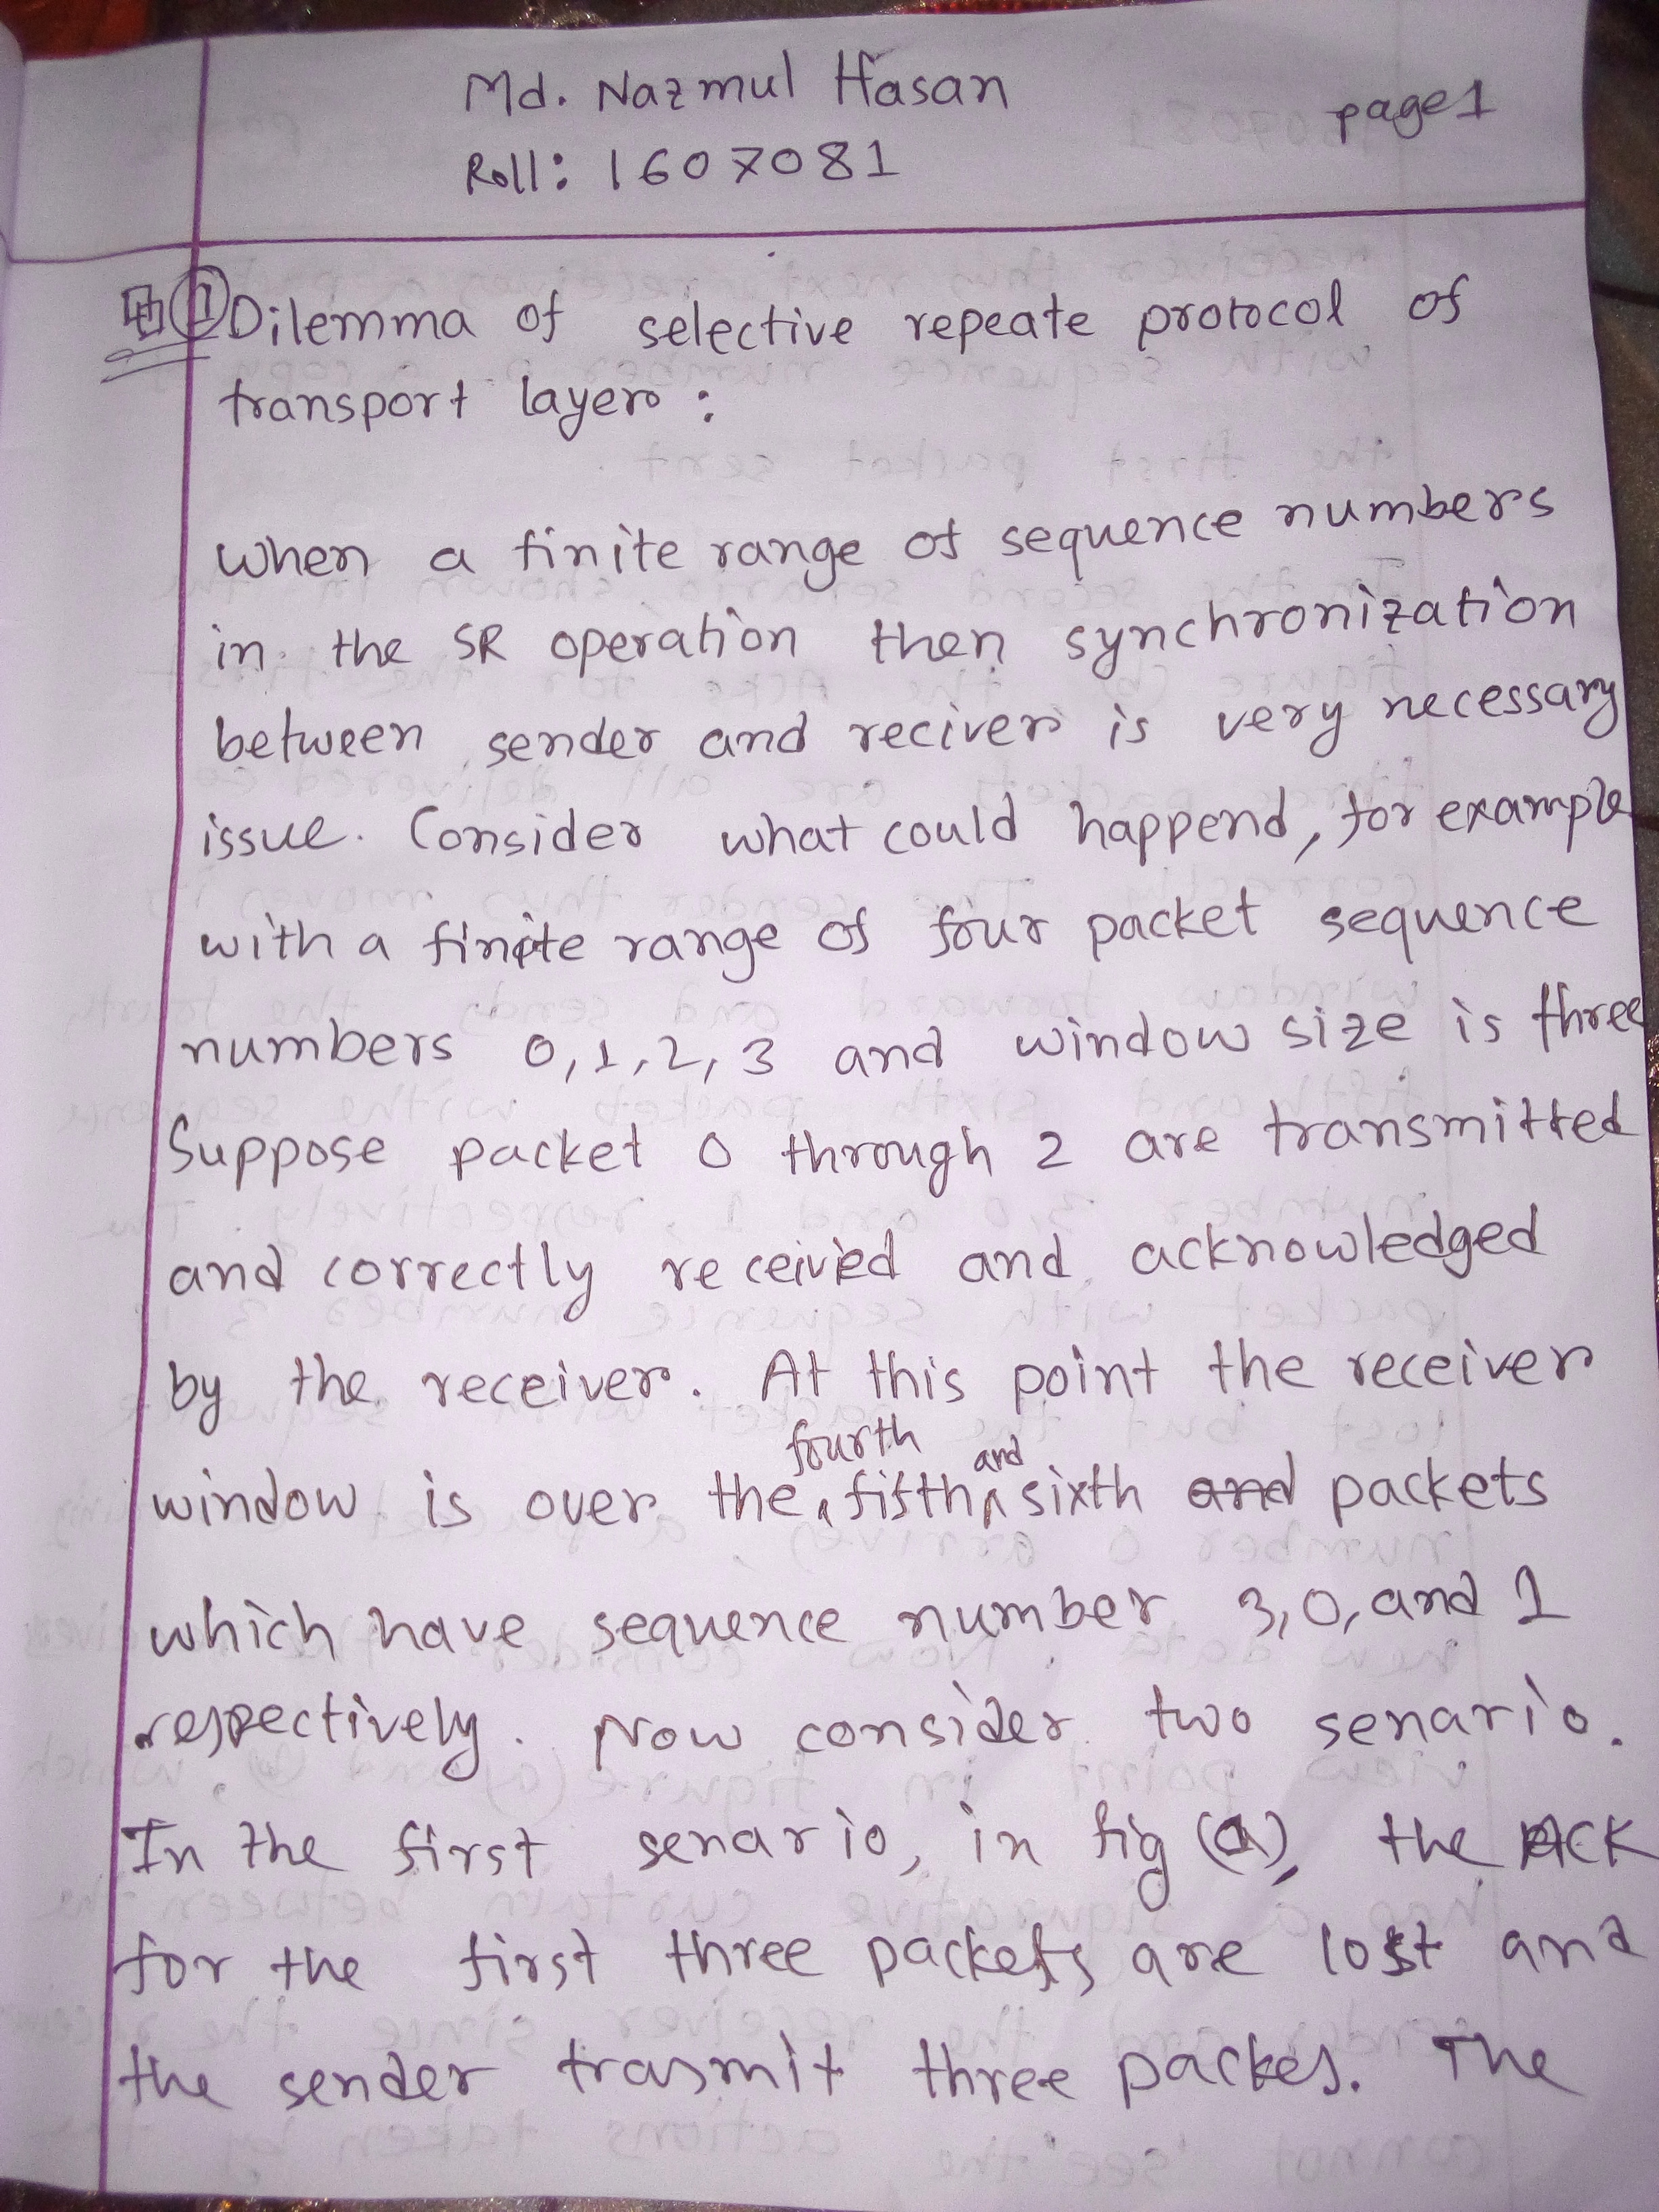 Md. Nazmul Hasan
page 1
Roll: 1607081
① Dilemma of selective repeate protocol of
transport layer :
When a finite range of sequence numbers
in the SR operation then synchronization
between sender and reciver is very necessary
issue. Consider what could happend, for example
with a finite range of four packet sequence
numbers 0,1,2,3 and window size is three
Suppose packet 0 through 2 are transmitted
and correctly received and acknowledged
by the receiver. At this point the receiver
window is over the fourth, fifth and sixth and packets
which have sequence number 3,0, and 1
respectively. Now consider two senario.
In the first senario, in fig (a), the ACK
for the first three packets are lost and
the sender trasmit three packes. The